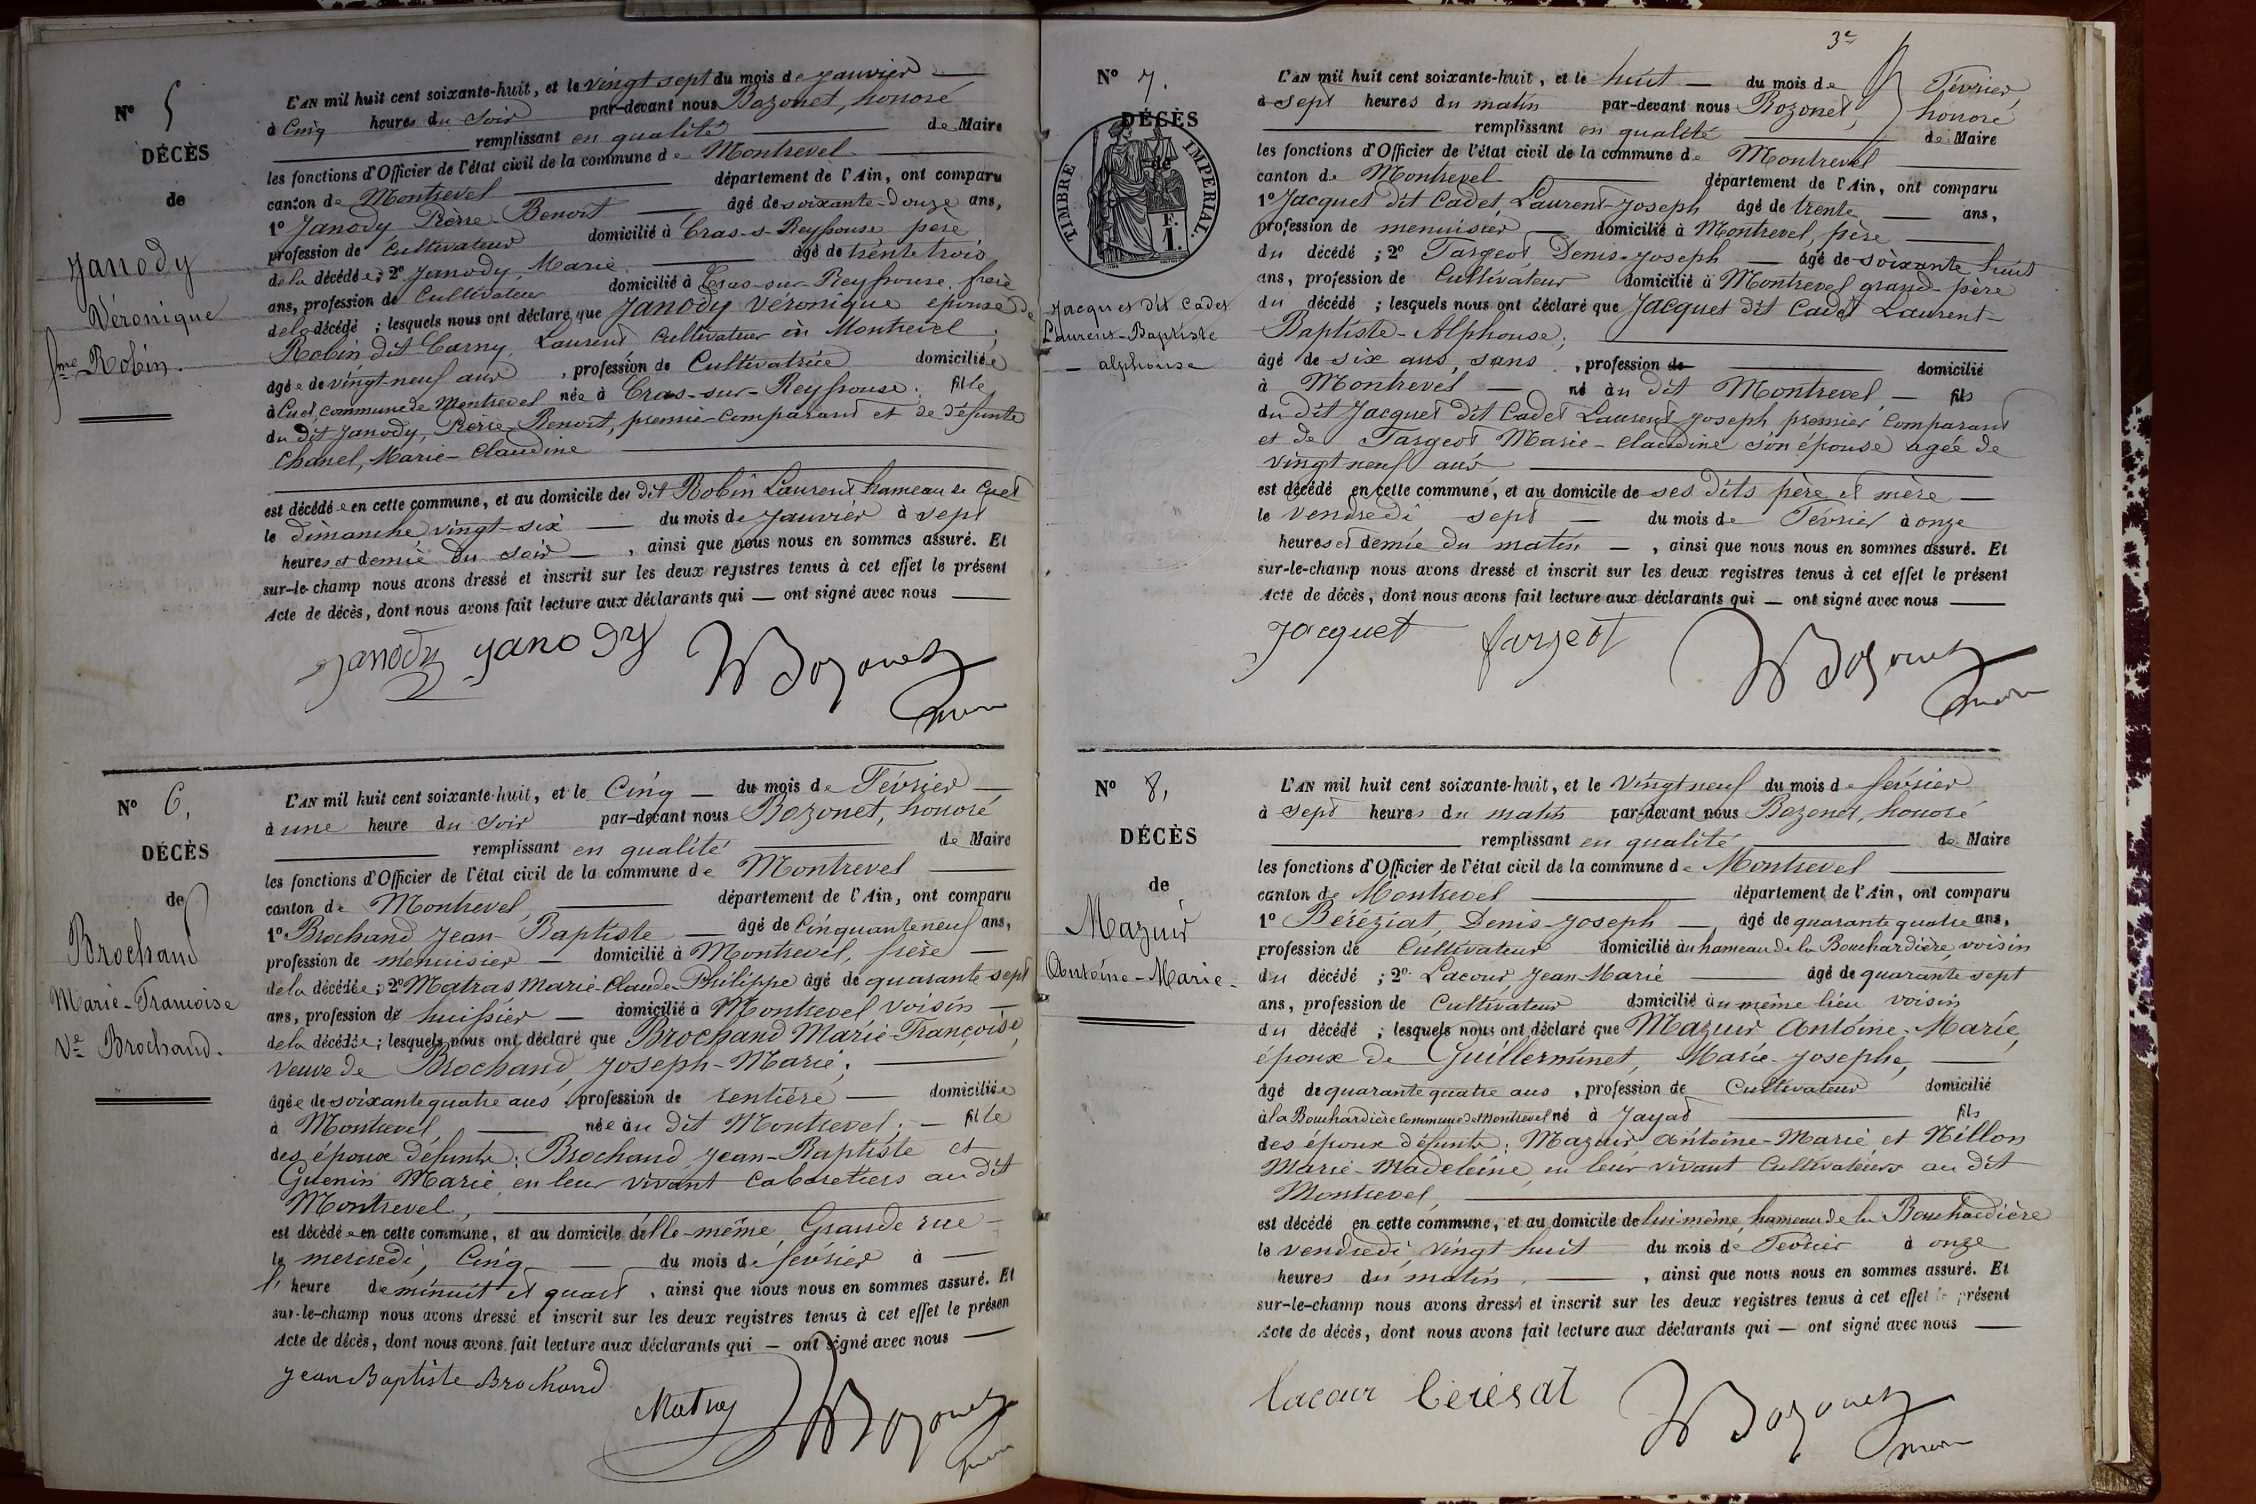 N° 5
DÉCÈS
de
Janody
Véronique
fme Robin.
L'AN mil huit cent soixante-huit, et le vingt sept du mois de Janvier
à Cinq heures du soir par-devant nous Bozonet, honoré
remplissant en qualité de Maire
les fonctions d'Officier de l'état civil de la commune de Montrevel
canton de Montrevel département de l'Ain, ont comparu
1° Janody Pierre Benoit âgé de soixante-douze ans,
profession de Cultivateur domicilié à Cras-s-Reyssouse père
de la décédée ; 2° Janody, Marie âgé de trente trois
ans, profession de Cultivateur domicilié à Cras-sur-Reyssouse, frère
de la décédé ; lesquels nous ont déclaré que Janody Véronique épouse de
Robin dit Carny, Laurent Cultivateur à Montrevel ;
âgée de vingt-neuf ans , profession de Cultivatrice domiciliée
à Cuet, Commune de Montrevel née à Cras-sur-Reyssouse ; fille
du dit Janody, Pierre Benoit, premier comparant et de défunte
Chanel, Marie-Claudine
est décédée en cette commune, et au domicile de dit Robin Laurent hameau de Cuet
le dimanche vingt-six du mois de Janvier à sept
heures et demie du soir , ainsi que nous nous en sommes assuré. Et
sur-le-champ nous avons dressé et inscrit sur les deux registres tenus à cet effet le présent
Acte de décès, dont nous avons fait lecture aux déclarants qui — ont signé avec nous
Janody Janody Bozonet
maire
N° 6,
DÉCÈS
de
Brochand
Marie-Francoise
Ve Brochand.
L'AN mil huit cent soixante-huit, et le Cinq du mois de Février
à une heure du soir par-devant nous Bozonet, honoré
remplissant en qualité de Maire
les fonctions d'Officier de l'état civil de la commune de Montrevel
canton de Montrevel, département de l'Ain, ont comparu
1° Brochand Jean-Baptiste âgé de Cinquante neuf ans,
profession de menuisier domicilié à Montrevel, frère
de la décédée ; 2° Matras Marie-Claude-Philippe âgé de quarante-sept
ans, profession de huissier domicilié à Montrevel voisin
de la décédée ; lesquels nous ont déclaré que Brochand Marie-Françoise,
veuve de Brochand, Joseph-Marie ;
âgée de soixante quatre ans , profession de rentière domiciliée
à Montrevel née au dit Montrevel ; fille
des époux défunts : Brochand Jean-Baptiste et
Guenin Marie en leur vivant Cabaretiers au dit
Montrevel,
est décédée en cette commune, et au domicile d'elle-même, Grande rue
le mercredi, Cinq du mois de février à
l' heure de minuit et quart , ainsi que nous nous en sommes assuré. Et
sur-le-champ nous avons dressé et inscrit sur les deux registres tenus à cet effet le présen
Acte de décès, dont nous avons fait lecture aux déclarants qui — ont signé avec nous
Jean Baptiste Brochand
Matras Bozonet
maire
3e
N° 7.
DÉCÈS
de
TIMBRE IMPÉRIAL.
F.
1.
Jacquet dit Cadet
Laurent-Baptiste
alphonse
L'AN mil huit cent soixante-huit, et le huit du mois de Février,
à sept heures du matin par-devant nous Bozonet, honoré
remplissant en qualité de Maire
les fonctions d'Officier de l'état civil de la commune de Montrevel
canton de Montrevel département de l'Ain, ont comparu
1° Jacquet dit Cadet, Laurent-Joseph âgé de trente ans,
profession de menuisier domicilié à Montrevel, père
du décédé ; 2° Fargeot Denis-Joseph âgé de soixante huit
ans, profession de Cultivateur domicilié à Montrevel grand-père
du décédé ; lesquels nous ont déclaré que Jacquet dit Cadet Laurent-
Baptiste-Alphonse ;
âgé de six ans, sans , profession de domicilié
à Montrevel né au dit Montrevel, fils
du dit Jacquet dit Cadet Laurent Joseph premier comparant
et de Fargeot Marie-Claudine son épouse agée de
vingt neuf ans
est décédé en cette commune, et au domicile de ses dits père et mère
le vendredi sept du mois de Février à onze
heures et demie du matin , ainsi que nous nous en sommes assuré. Et
sur-le-champ nous avons dressé et inscrit sur les deux registres tenus à cet effet le présent
Acte de décès, dont nous avons fait lecture aux déclarants qui — ont signé avec nous
Jacquet fargeot Bozonet
maire
N° 8,
DÉCÈS
de
Mazuir
Antoine-Marie.
L'AN mil huit cent soixante-huit, et le vingt neuf du mois de février
à sept heures du matin par-devant nous Bozonet, honoré
remplissant en qualité de Maire
les fonctions d'Officier de l'état civil de la commune de Montrevel
canton de Montrevel département de l'Ain, ont comparu
1° Béréziat, Denis-Joseph âgé de quarante quatre ans,
profession de Cultivateur domicilié au hameau de la Bouchardière, voisin
du décédé ; 2° Lacour, Jean-Marie âgé de quarante sept
ans, profession de Cultivateur domicilié au même lieu voisin
du décédé ; lesquels nous ont déclaré que Mazuir Antoine-Marie,
époux de Guillerminet, Marie-Josephe,
âgé de quarante quatre ans , profession de Cultivateur domicilié
à la Bouchardière Commune de Montrevel né à Jayat fils
des époux défunts : Mazuir Antoine-Marie et Nillon
Marie-Madeleine, en leur vivant Cultivateurs au dit
Montrevel,
est décédé en cette commune, et au domicile de lui même, hameau de la Bouchardière
le vendredi vingt huit du mois de Février à onze
heures du matin , ainsi que nous nous en sommes assuré. Et
sur-le-champ nous avons dressé et inscrit sur les deux registres tenus à cet effet le présent
Acte de décès, dont nous avons fait lecture aux déclarants qui — ont signé avec nous
Lacour berésat Bozonet
maire